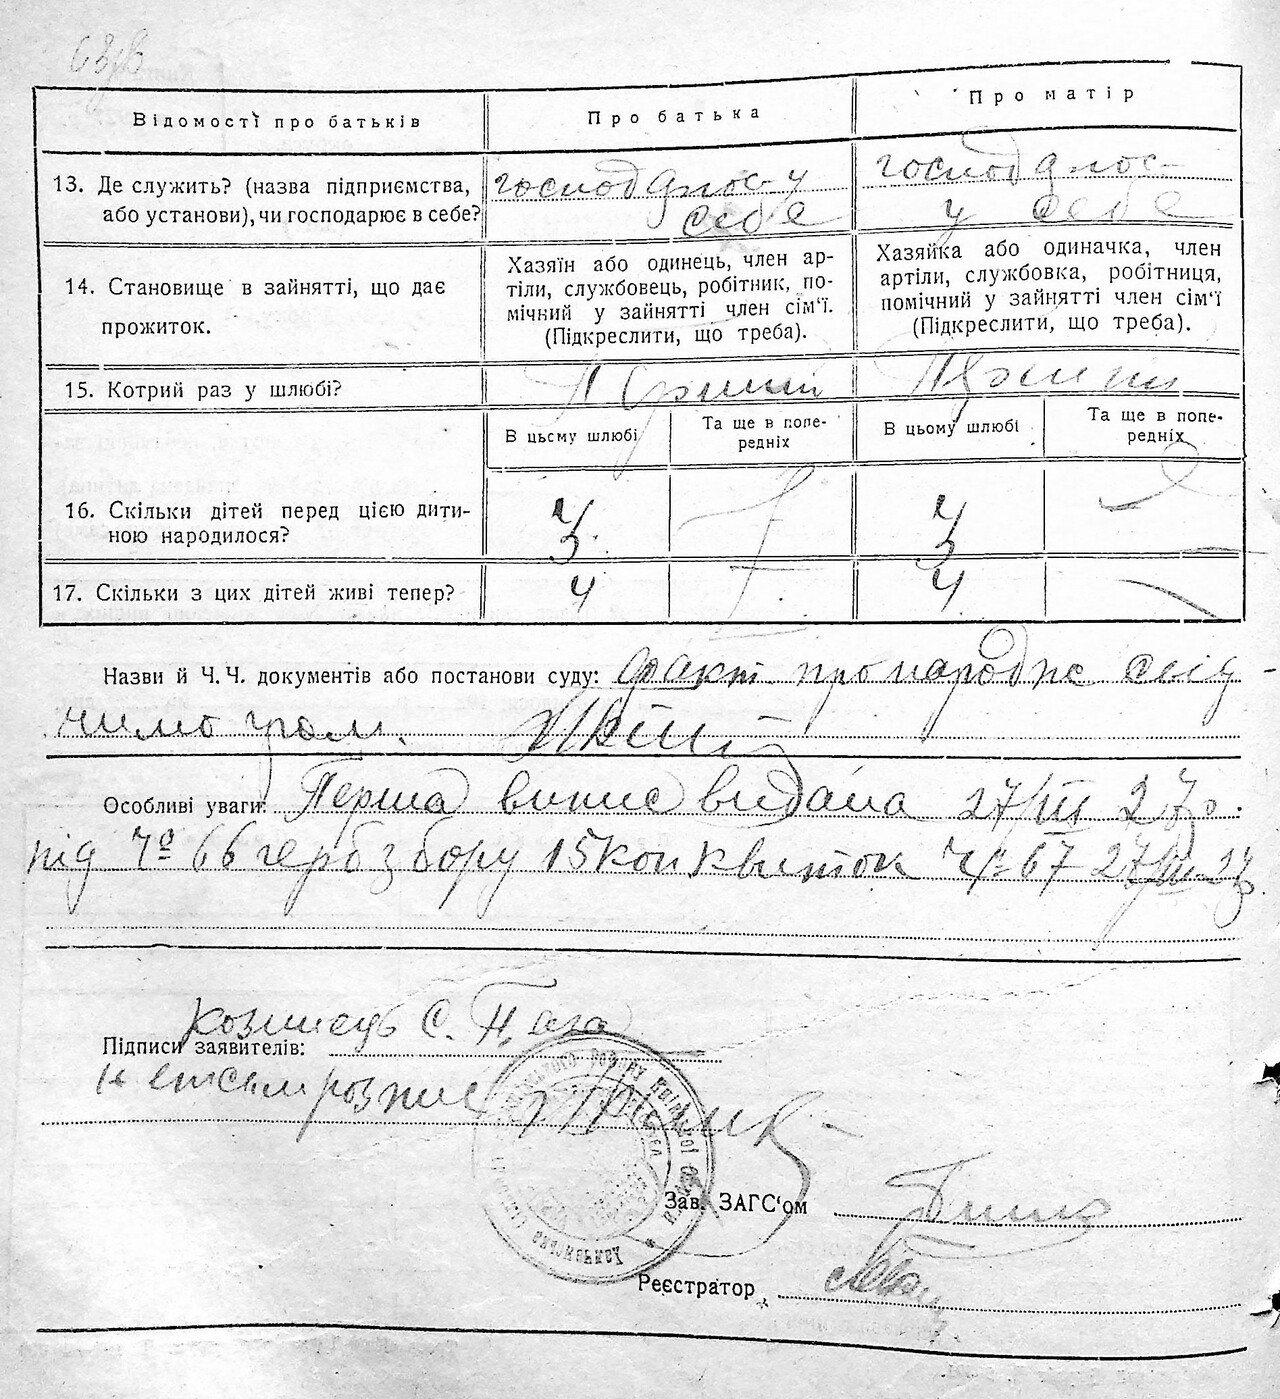 Відомості про батьків
Про батька
Про матір
13. Де служить? (назва підприємства,
або установи), чи господарює в себе?
господ
у
себе
господ
у себе
14. Становище в зайнятті, що дає
прожиток.
Хазяїн або одинець, член ар-
тіли, службовець, робітник, по-
мічний у зайнятті член сім‘ї.
(Підкреслити, що треба).
Хазяйка або одиначка, член
артіли, службовка, робітниця,
помічний у зайнятті член сім‘ї
(Підкреслити, що треба).
15. Котрий раз у шлюбі?
В цьому шлюбі
Та ще в попе-
редніх
В цьому шлюбі
Та ще в попе-
редніх
16. Скільки дітей перед цією дити-
ною народилося?
17. Скільки з цих дітей живі тепер?
4
4
Назви й Ч. Ч. документів або постанови суду: факт про народж
Особливі уваги: Перша випис видана 27/III 27 р.
під 66 герб збору 15 коп квиток 67 27/III 27
Підписи заявителів:
Зав. ЗАГС‘ом
Реєстратор